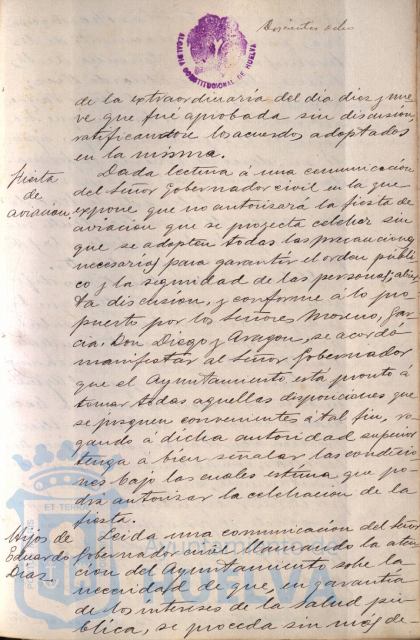 Doscientos ocho
ALCALDIA CONSTITUCIONAL DE HUELVA
de la extraordinaria del dia diez y nue
ve que fué aprobada sin discusión,
ratificandose los acuerdos adoptados
en la misma.
Fiesta
de
aviación.
Dada lectura á una comunicación
del Señor Gobernador civil en la que
expone que no autorizará la fiesta de
aviacion que se proyecta celebrar sin
que se adopten todas las precauciones
necesarias para garantir el orden públi
co y la seguridad de las personas; abier
ta discusion, y conforme á lo pro
puesto por los Señores Moreno, Gar
cia, Don Diego y Aragon, se acordó
manifestar al Señor Gobernador
que el Ayuntamiento está pronto á
tomar todas aquellas disposiciones que
se juzguen convenientes á tal fin, ro
gando á dicha autoridad superior
tenga á bien señalar las condicio
nes bajo las cuales estima que po
drá autorizar la celebracion de la
fiesta.
Hijos de
Eduardo
Diaz.
Leida una comunicación del Señor
Gobernador civil llamando la aten
cion del Ayuntamiento sobre la
necesidad de que, en garantia
de los intereses de la Salud pú
blica, se proceda sin mas de
ET TERRÆ
Ayuntamiento de
HUELVA